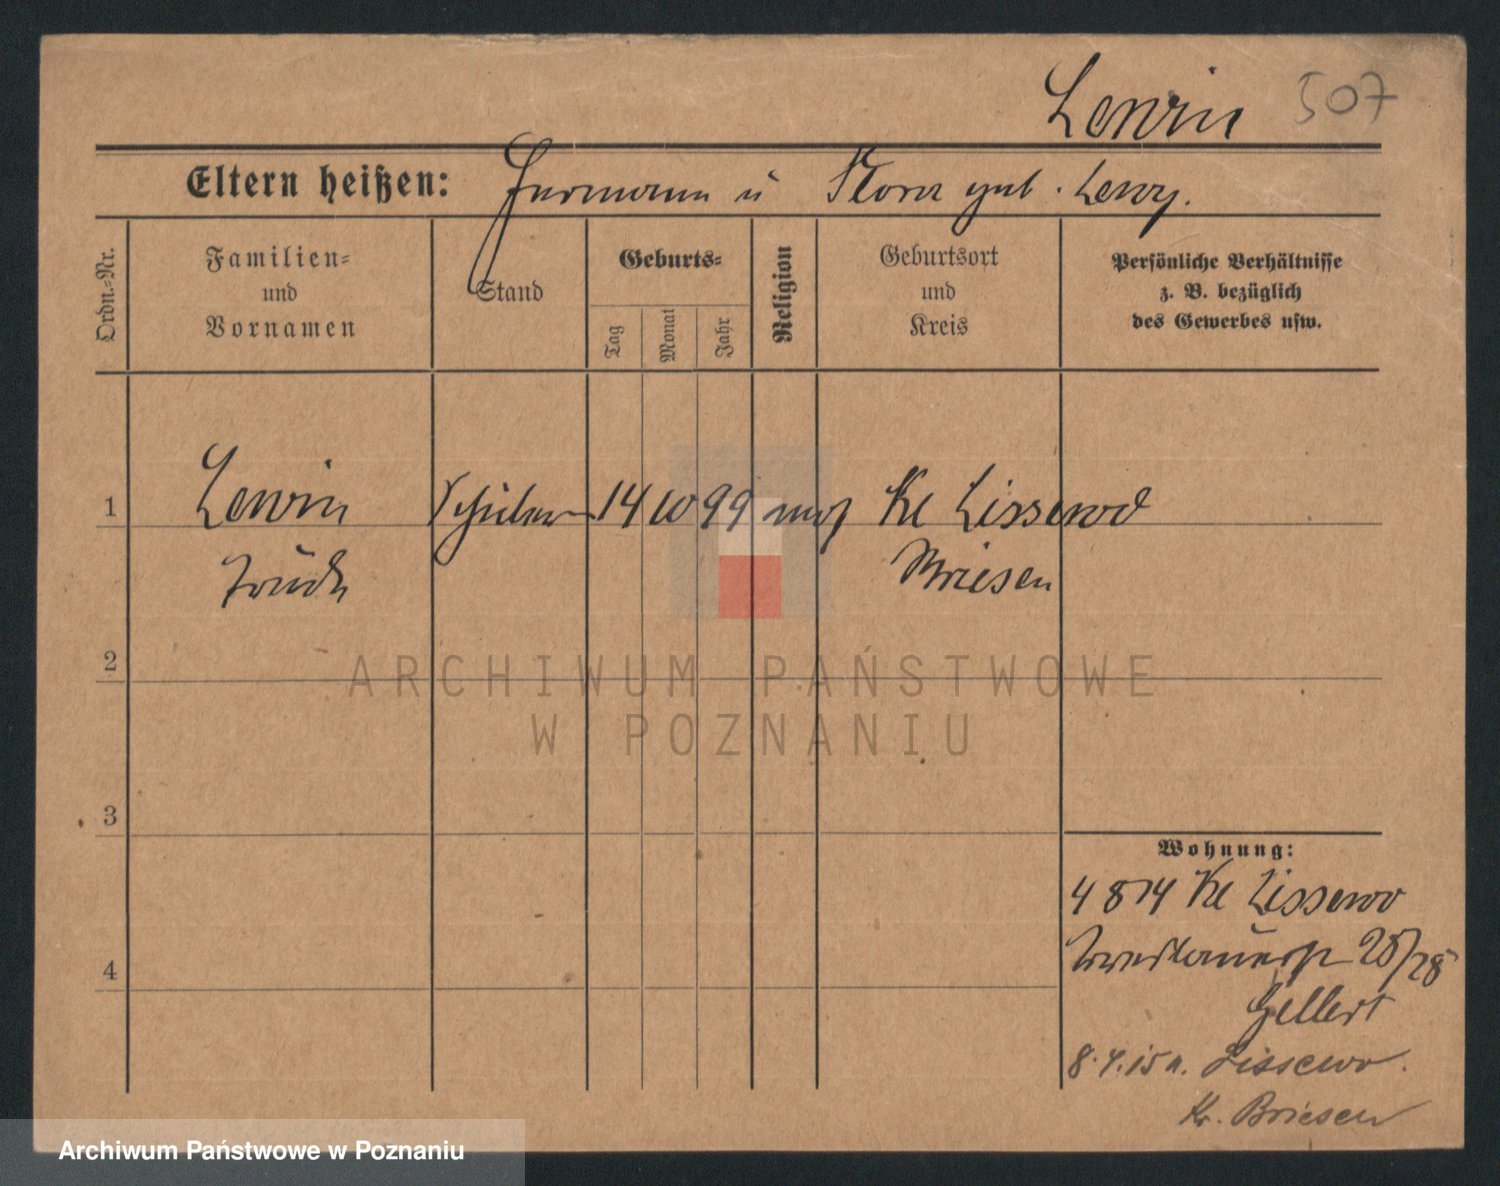 Lewin 507
Eltern heißen: Hermann u Flora geb. Lewy.
Ordn.=Nr.
Familien=
und
Vornamen
Stand
Geburts=
Tag
Monat
Jahr
Religion
Geburtsort
und
Kreis
Persönliche Verhältnisse
z. B. bezüglich
des Gewerbes usw.
1 Lewin Schülerin 14 10 99 mos Kl Lissewo
Briesen
2
3
4
Wohnung:
4 8 14 Kl Lissewo
28/28
Gellert
8.4.15 n. Lissewo.
Kr. Briesen
ARCHIWUM PAŃSTWOWE
W POZNANIU
Archiwum Państwowe w Poznaniu